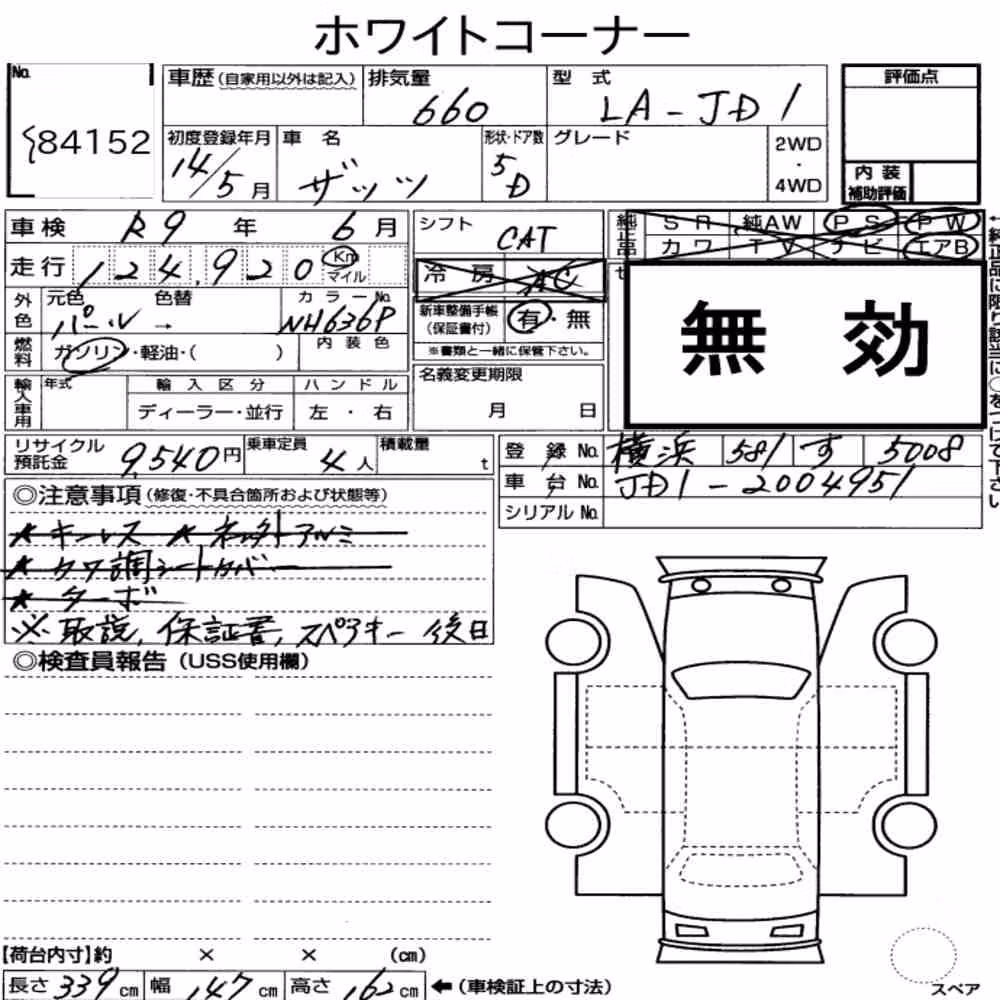 ホワイトコーナー
No. 84152
車歴(自家用以外は記入) 排気量 660 型式 LA-JD1 評価点
初度登録年月 14/5月 車名 ザッツ 形状・ドア数 5D グレード 2WD・4WD 内装補助評価
車検 R9年 6月 シフト CAT 純正品 SR 純AW PS PW
走行 124,920 Km マイル 冷房 AC カワ TV ナビ エアB
外色 元色 パール → 色替 カラーNo. NH636P 新車整備手帳(保証書付) 有・無 無効
燃料 ガソリン・軽油・( ) 内装色 ※書類と一緒に保管下さい。
輸入車用 年式 輸入区分 ハンドル 名義変更期限
ディーラー・並行 左・右 月 日
リサイクル預託金 9,540円 乗車定員 4人 積載量 t 登録No. 横浜 581 す 5008
車台No. JD1-2004951
シリアルNo.
◎注意事項(修復・不具合箇所および状態等)
★キーレス ★ 社外アルミ
★カワ調シートカバー
★ターボ
※取説, 保証書, スペアキー後日
◎検査員報告(USS使用欄)
【荷台内寸】約 × × (cm)
長さ 339 cm 幅 147 cm 高さ 162 cm ←(車検証上の寸法)
スペア